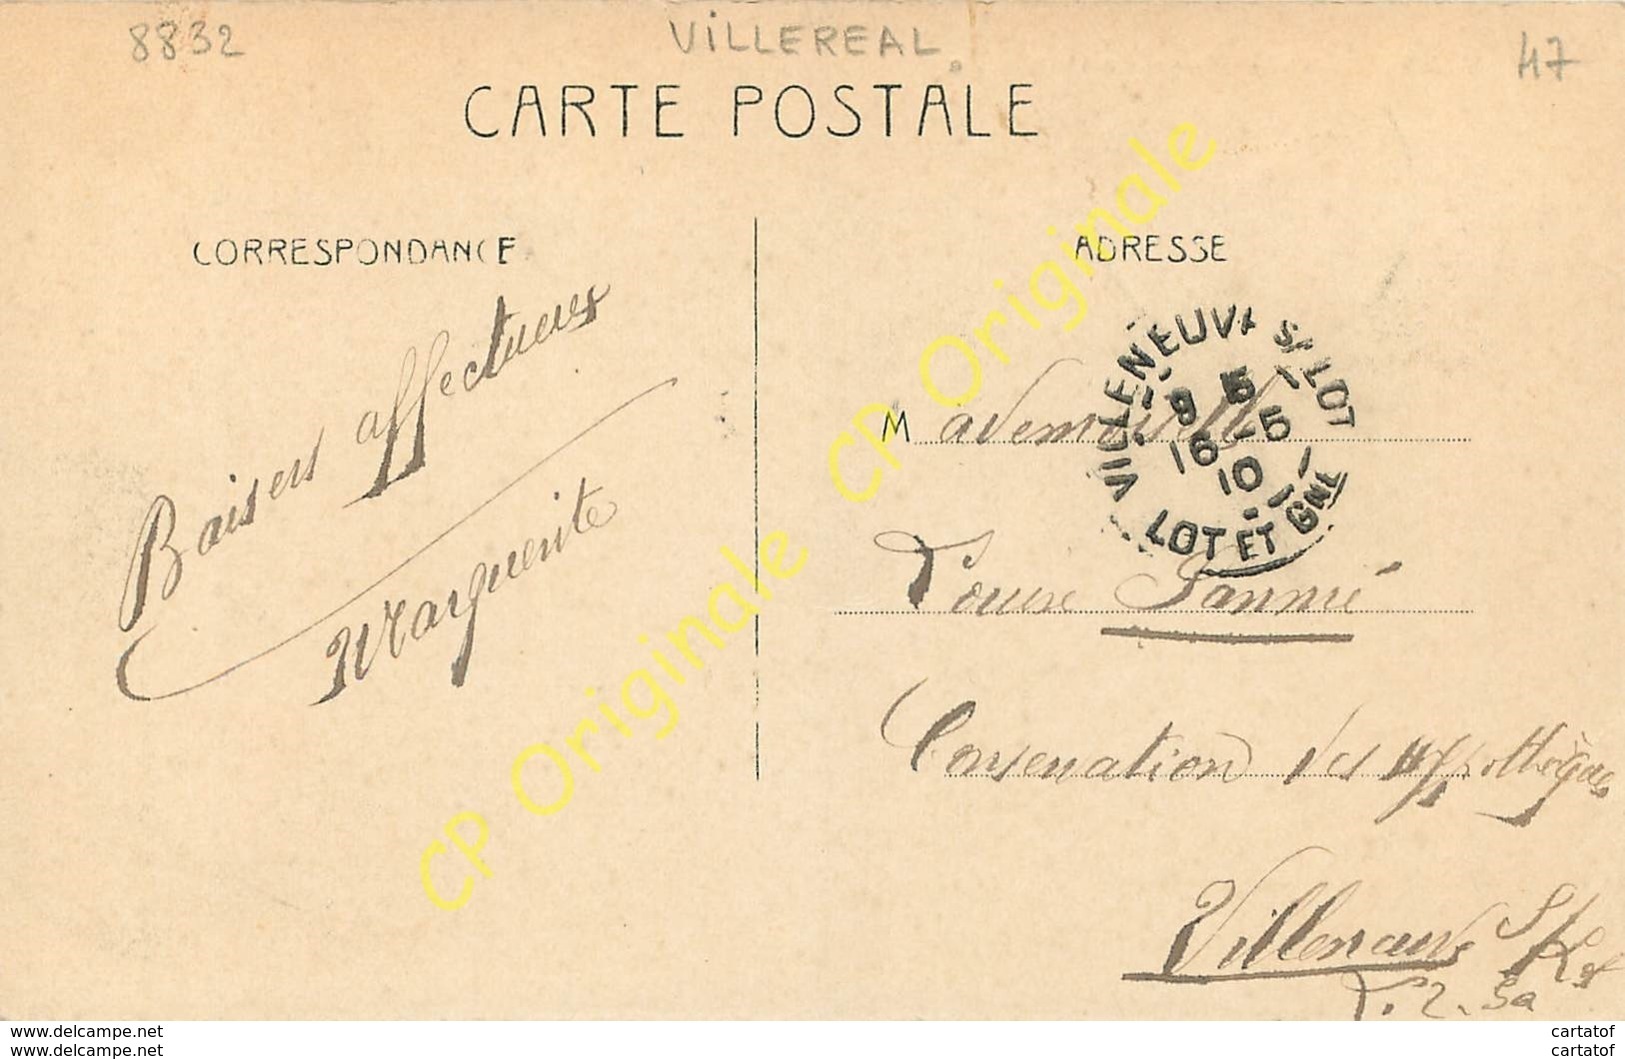 8832
VILLEREAL
47
CARTE POSTALE
CORRESPONDANCE
ADRESSE
Baisers affectueux
Marguerite
Mademoiselle
Louise Lannié
Conservation des Hypothèques
Villeneuve S/Lot
VILLENEUVE S/ LOT
16 -5
10
LOT ET GNE
CP Originale
CP Originale
www.delcampe.net
www.delcampe.net
cartatof
cartatof